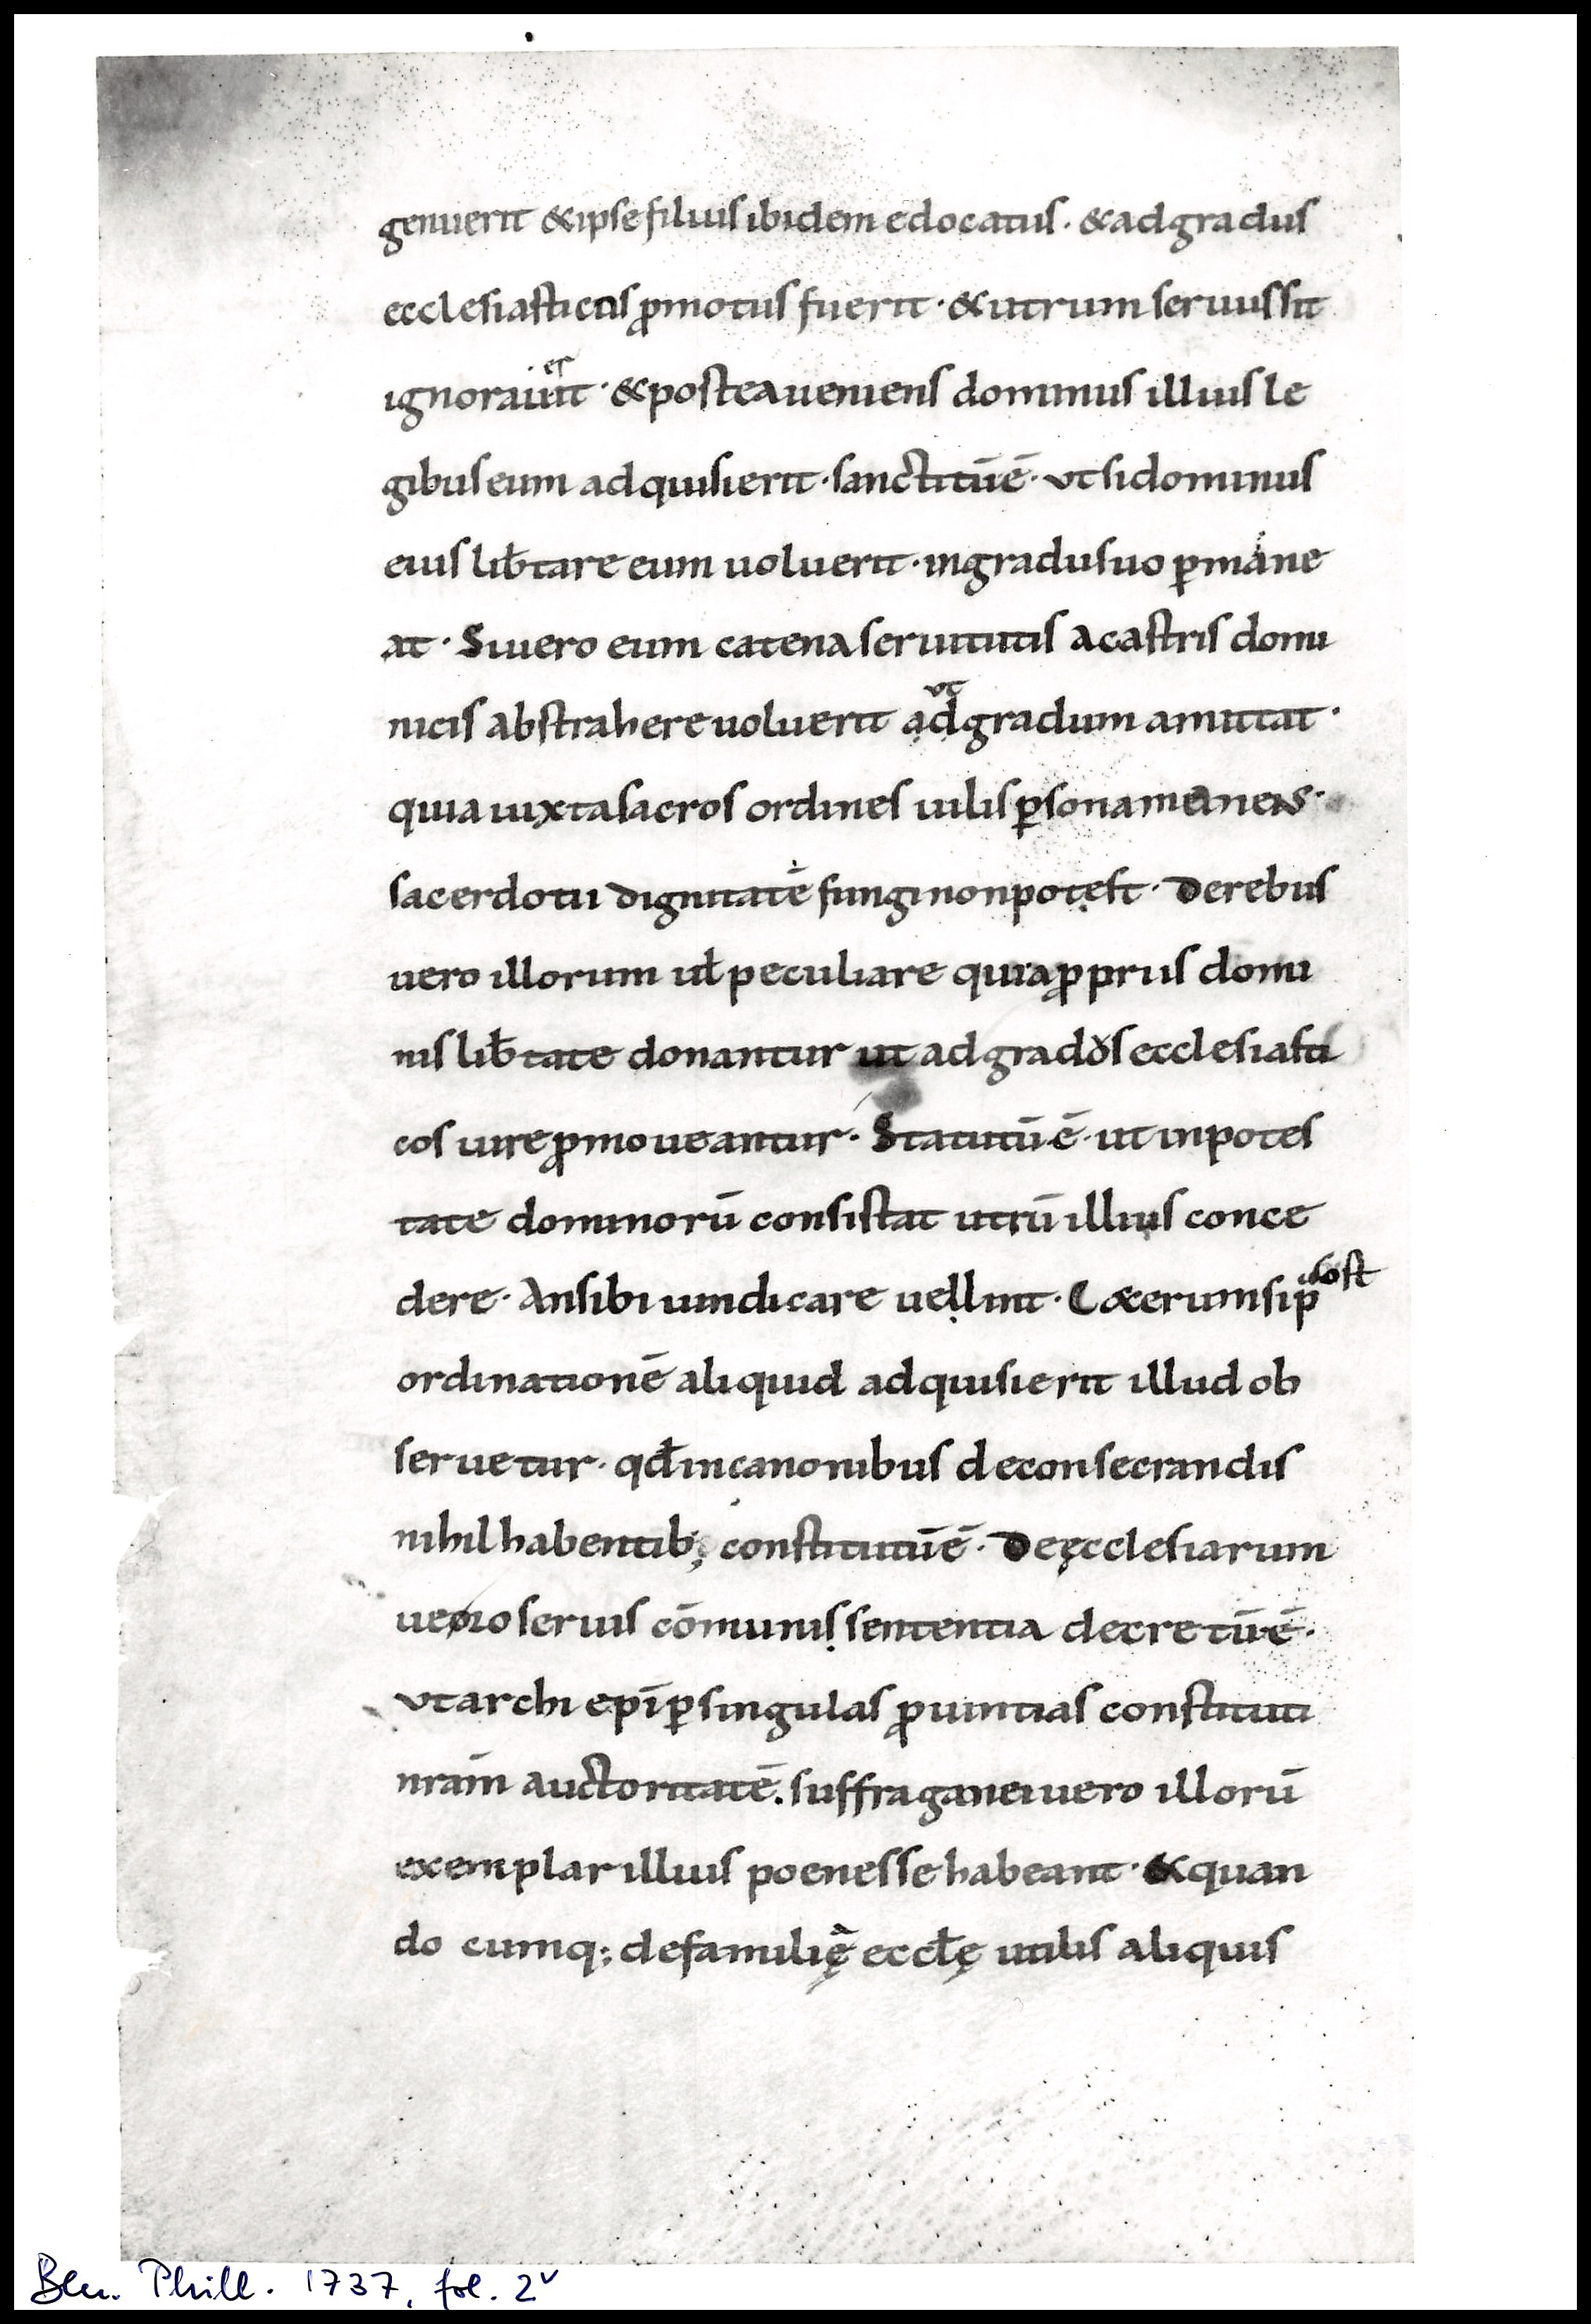 genuerit & ipse filius ibidem edocatus · & ad gradus
ecclesiasticus ꝓmotus fuerit · & utrum seruus sit
ignorauerit · & postea ueniens dominus illius le
gibus eum adquisierit · sanctitū ē · ut si dominus
eius lib̄tare eum uoluerit · in gradu suo ꝑmane
at · Si uero eum catena seruitutis a castris domi
nicis abstrahere uoluerit ut gradum amittat ·
quia iuxta sacros ordines uilis ꝑsona manens ·
sacerdotii dignitate fungi non potest · De rebus
uero illorum ul̄ peculiare quia ꝓpriis domi
nis lib̄tate donantur ut ad gradus ecclesiasti
cos iure ꝓmoueantur · Statutū ē · ut in potes
tate dominorū consistat utrū illius conce
dere · An sibi uindicare uellint · C&erum si post
ordinationē aliquid adquisierit illud ob
seruetur · qđ in canonibus de consecrandis
nihil habentib; constitutū ē · De ęcclesiarum
uero seruis cōmunis sententia decretū ē ·
ut archiepī ꝑ singulas ꝓuintias constituti
nrām auctoritatē . suffraganei uero illorū
exemplar illius poenes se habeant · & quan
do cumq; de familię eccłę utilis aliquis
Phill. 1737, fol. 2v